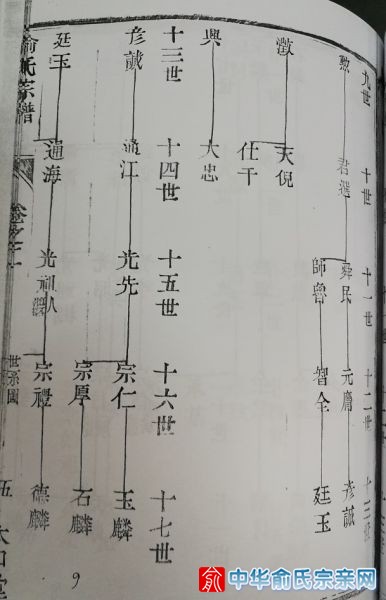 九世 十世 十一世 十二世 十三世
勲 君選 舜民 元膺 彥誠
師魯 智全 廷玉
澂 天倪
仕干
興 大忠
十三世 十四世 十五世 十六世 十七世
彥誠 通江 光先 宗仁 玉麟
宗厚 石麟
廷玉 通海 光祖 宗禮 德麟
俞氏宗譜 卷之 世系圖 五
9
俞 中华俞氏宗亲网